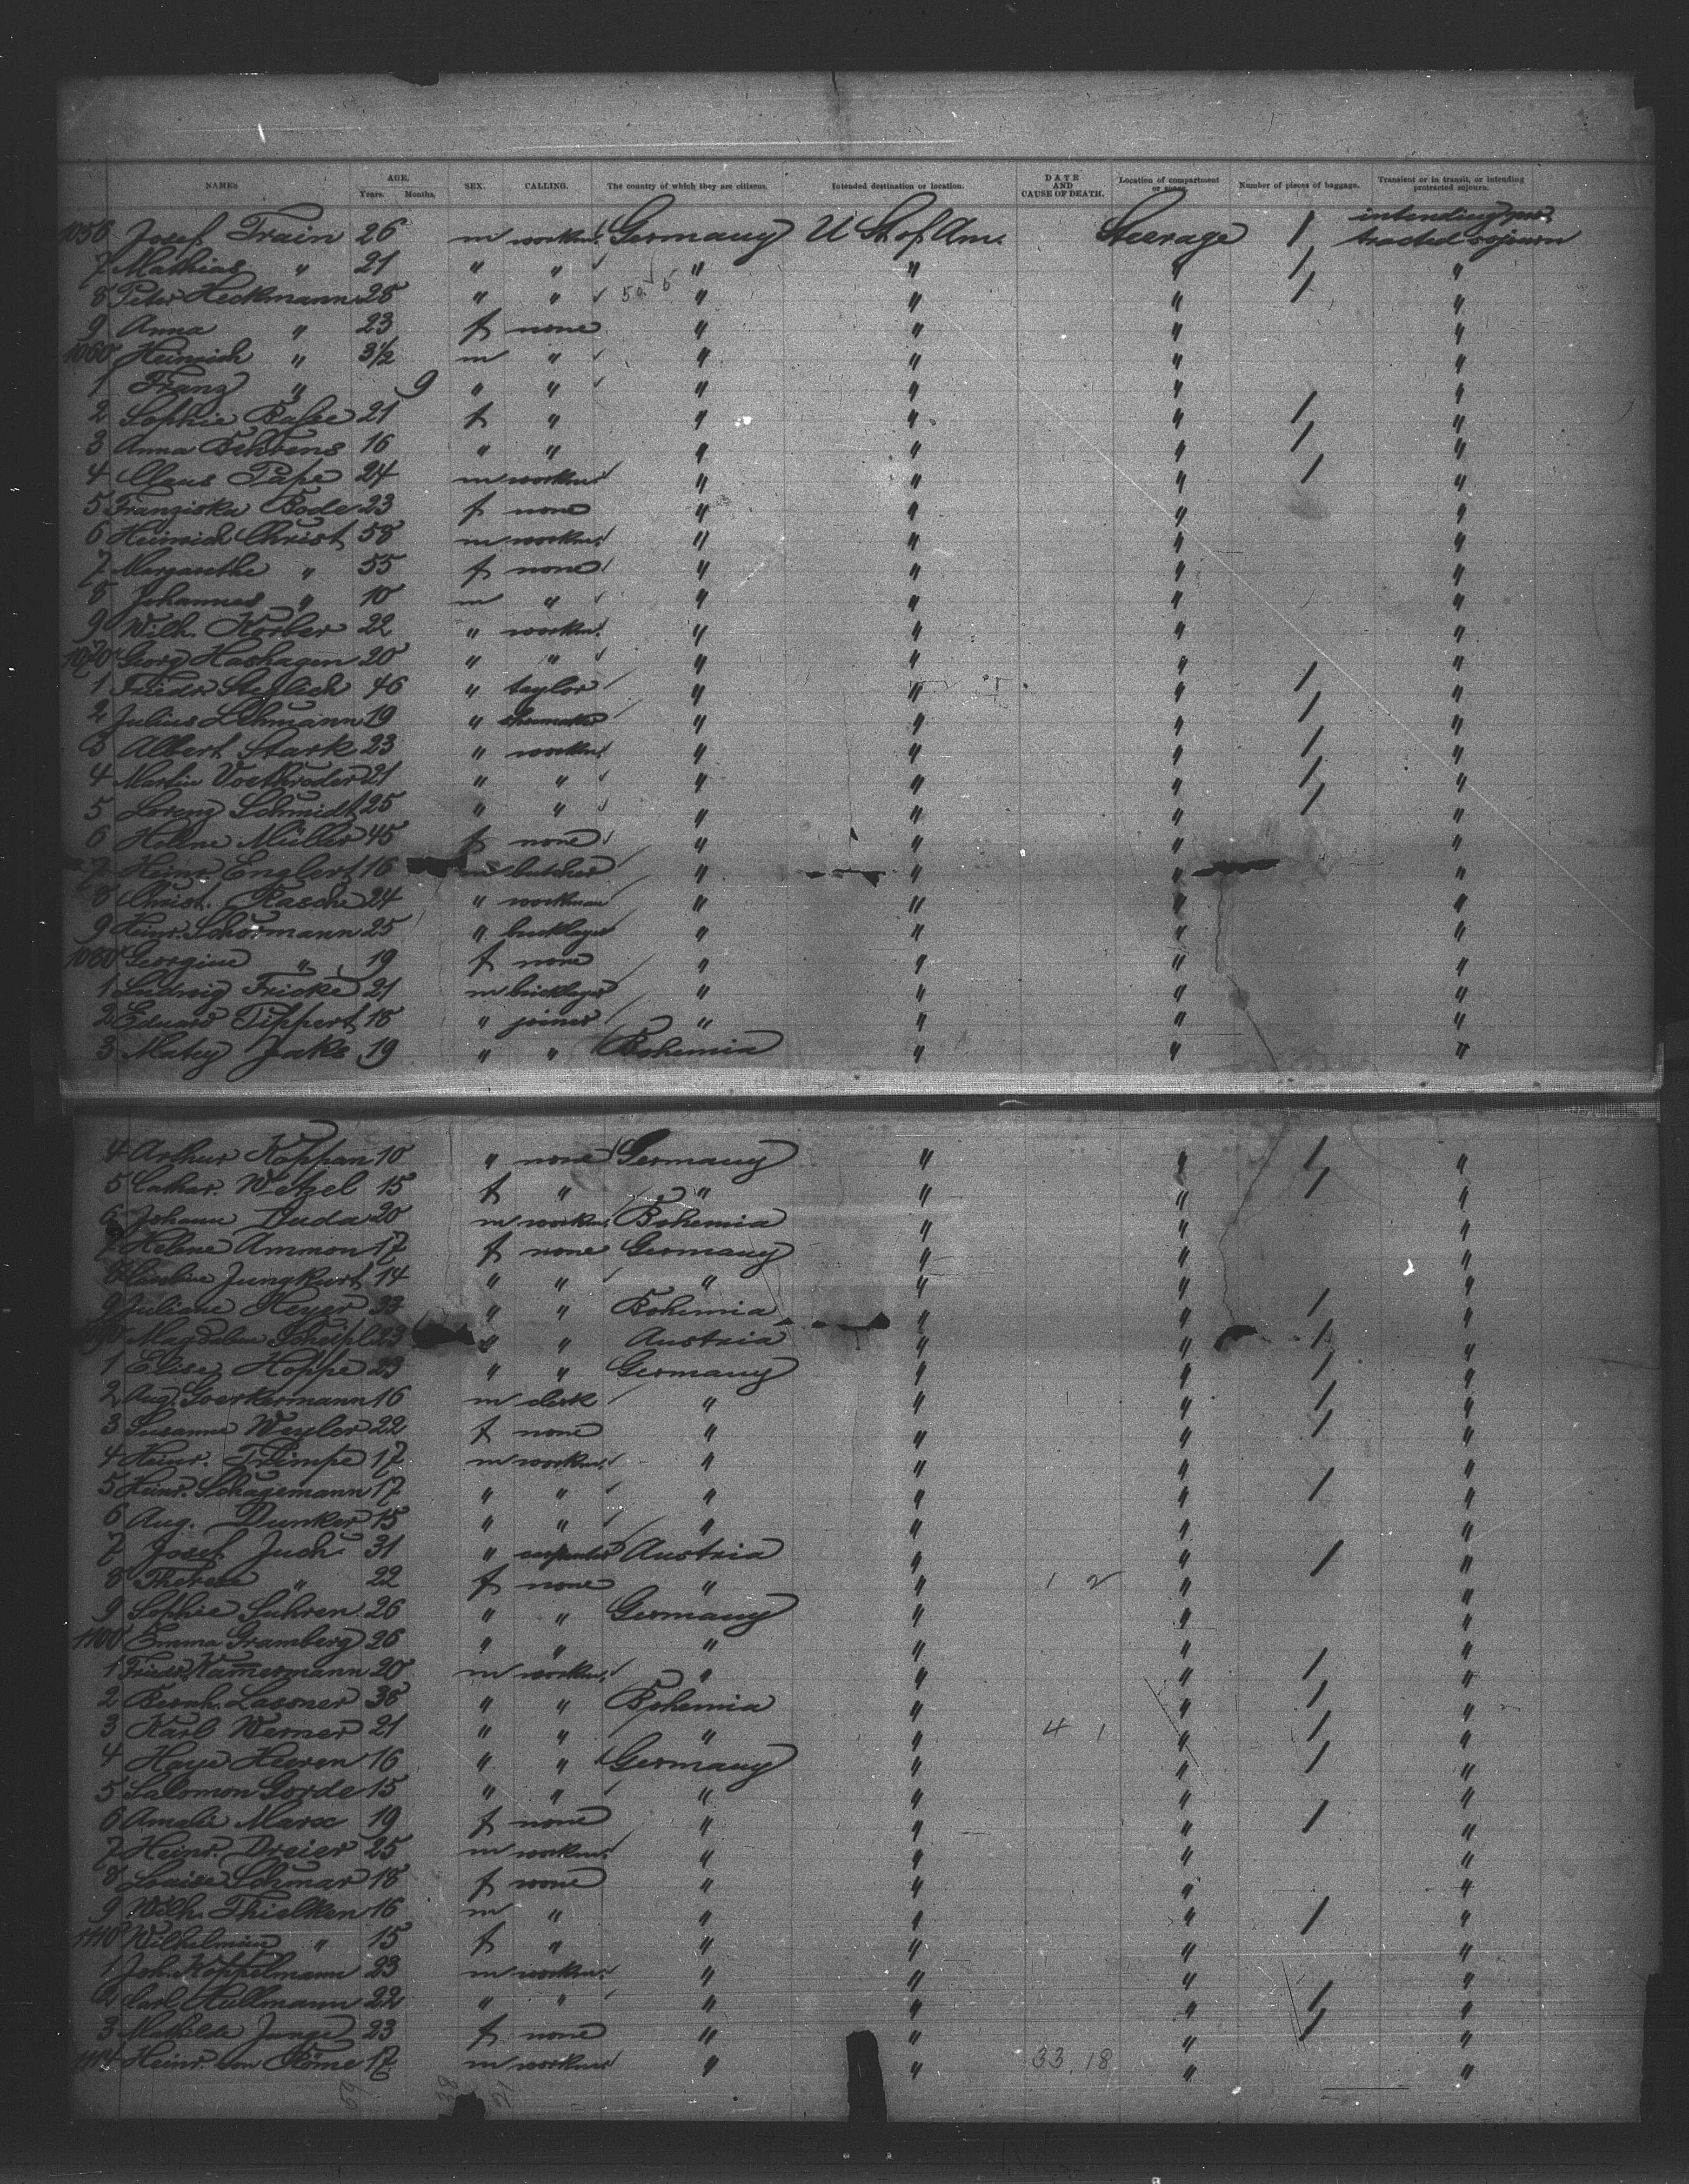 NAMES AGE. Years. Months. SEX. CALLING. The country of which they are citizens. Intended destination or location. DATE AND CAUSE OF DEATH. Location of compartment or space. Number of pieces of baggage. Transient or in transit, or intending protracted sojourn.
1056 Josef Train 26 m workm. Germany U St of Am. Steerage / intending protracted sojourn
7 Mathias " 21 " " " " " / "
8 Peter Heckmann 25 " " " " " / "
9 Anna " 23 f none " " " "
1060 Heinrich " 3½ m " " " " "
1 Franz " 9 " " " " " "
2 Sophie Basse 21 f " " " " / "
3 Anna Behrens 16 " " " " " / "
4 Claus Pape 24 m workm. " " " / "
5 Franziska Bode 23 f none " " " "
6 Heinrich Christ 58 m workm. " " " "
7 Margarethe " 55 f none " " " "
8 Johannes " 10 m " " " " "
9 Wilh. Körber 22 " workm. " " " "
1070 Georg Hashagen 20 " " " " " "
1 Friedr. Steglich 46 " taylor " " " / "
2 Julius Lehmann 19 " shoemaker " " " / "
3 Albert Stark 23 " workm. " " " / "
4 Martin Voethröder 21 " " " " " / "
5 Lorenz Schmidt 25 " " " " " / "
6 Helene Müller 45 f none " " " "
7 Heinr. Englert 16 m butcher " " " "
8 Christ. Rasche 24 " workman " " " "
9 Heinr. Schörmann 25 " bricklayer " " " "
1080 Georgine " 19 f none " " " "
1 Ludwig Fricke 21 m bricklayer " " " "
2 Eduard Tippert 18 " joiner " " " "
3 Matey Jaks 19 " " Bohemia " " "
4 Arthur Koppan 10 " none Germany " " / "
5 Cathar. Wetzel 15 f " " " " / "
6 Johann Duda 20 m workm. Bohemia " " "
7 Helene Ammon 17 f none Germany " " "
8 Jungkurt 14 " " " " " "
9 Juliane Heyer 33 " " Bohemia " " / "
Magdalena 23 " " Austria " " / "
1 Elise Hoppe 23 " " Germany " " / "
2 Aug. Goerkermann 16 m clerk " " " / "
3 Susanne Weyler 22 f none " " " / "
4 Heinr. Trimpe 17 m workm. " " " "
5 Heinr. Schagemann 17 " " " " " / "
6 Aug. Dunker 15 " " " " " "
7 Josef Juch 31 " carpenter Austria " " / "
8 Therese " 22 f none " " 1 2 " "
9 Sophie Suhren 26 " " Germany " " "
1100 Emma Gramberg 26 " " " " " "
1 Friedr. Kamermann 20 m workm. " " " / "
2 Bernh. Lassner 38 " " Bohemia " " / "
3 Karl Werner 21 " " " " 4 1 " / "
4 Haye Heeren 16 " " Germany " " / "
5 Salomon Gorde 15 " " " " " "
6 Amalie Marx 19 f none " " " / "
7 Heinr. Dreier 25 m workm. " " " "
8 Louise Schmar 18 f none " " " "
9 Wilh. Thielken 16 m " " " " / "
1110 Wilhelmine " 15 f " " " " "
1 Joh. Koppelmann 23 m workm. " " " "
2 Carl Hullmann 22 " " " " " / "
3 Mathilde Junge 23 f none " " " / "
1114 Heinr. von Röme 17 m workm. " " 33.18 " "